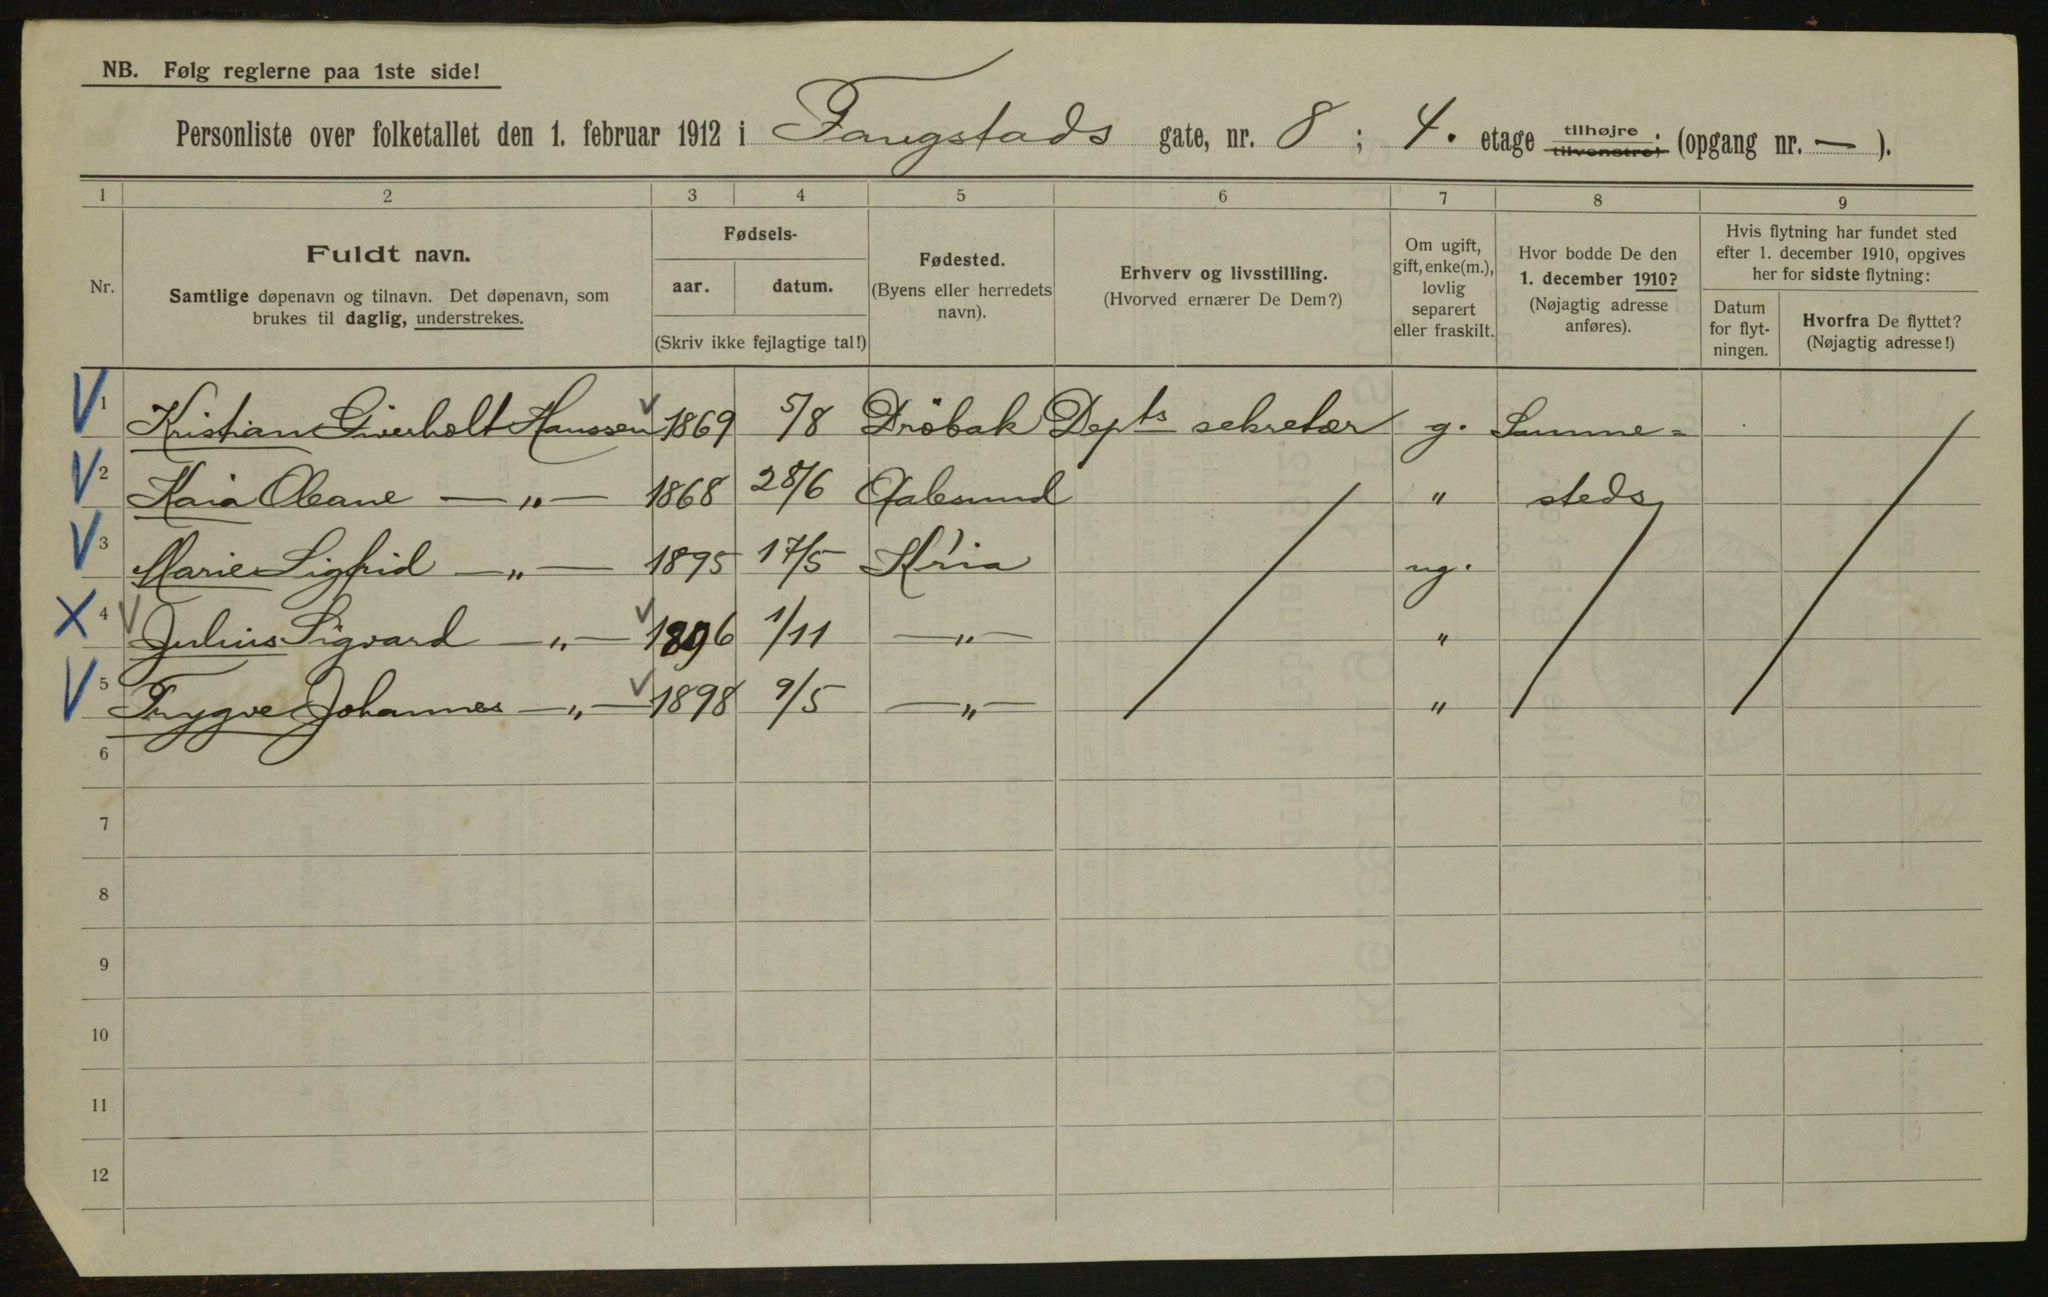 NB. Følg reglerne paa 1ste side!
Personliste over folketallet den 1. februar 1912 i Fougstads gate, nr. 8 ; 4. etage tilhøjre tilvenstre; (opgang nr. — ).
1 2 3 4 5 6 7 8 9
Nr.
Fuldt navn.
Samtlige døpenavn og tilnavn. Det døpenavn, som
brukes til daglig, understrekes.
Fødsels-
aar. datum.
(Skriv ikke fejlagtige tal!)
Fødested.
(Byens eller herredets
navn).
Erhverv og livsstilling.
(Hvorved ernærer De Dem?)
Om ugift,
gift, enke(m.),
lovlig
separert
eller fraskilt.
Hvor bodde De den
1. december 1910?
(Nøjagtig adresse
anføres).
Hvis flytning har fundet sted
efter 1. december 1910, opgives
her for sidste flytning:
Datum
for flyt-
ningen.
Hvorfra De flyttet?
(Nøjagtig adresse!)
1 Kristian Giverholt Hanssen 1869 5/8 Drøbak Depts sekretær g. Samme-
2 Kaia Oleane — „ — 1868 28/6 Aalesund " steds
3 Marie Sigfrid — „ — 1895 17/5 Kr'ia ug.
4 Julius Sigvard — „ — 1896 1/11 — „ — "
5 Trygve Johannes — „ — 1898 9/5 — „ — "
6
7
8
9
10
11
12